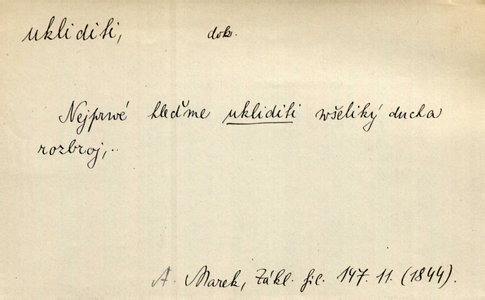 ukliditi, dok.
Nejprwé hleďme ukliditi wšeliký ducha
rozbroj,..
A. Marek, Zákl. fil. 147. 11. (1844).